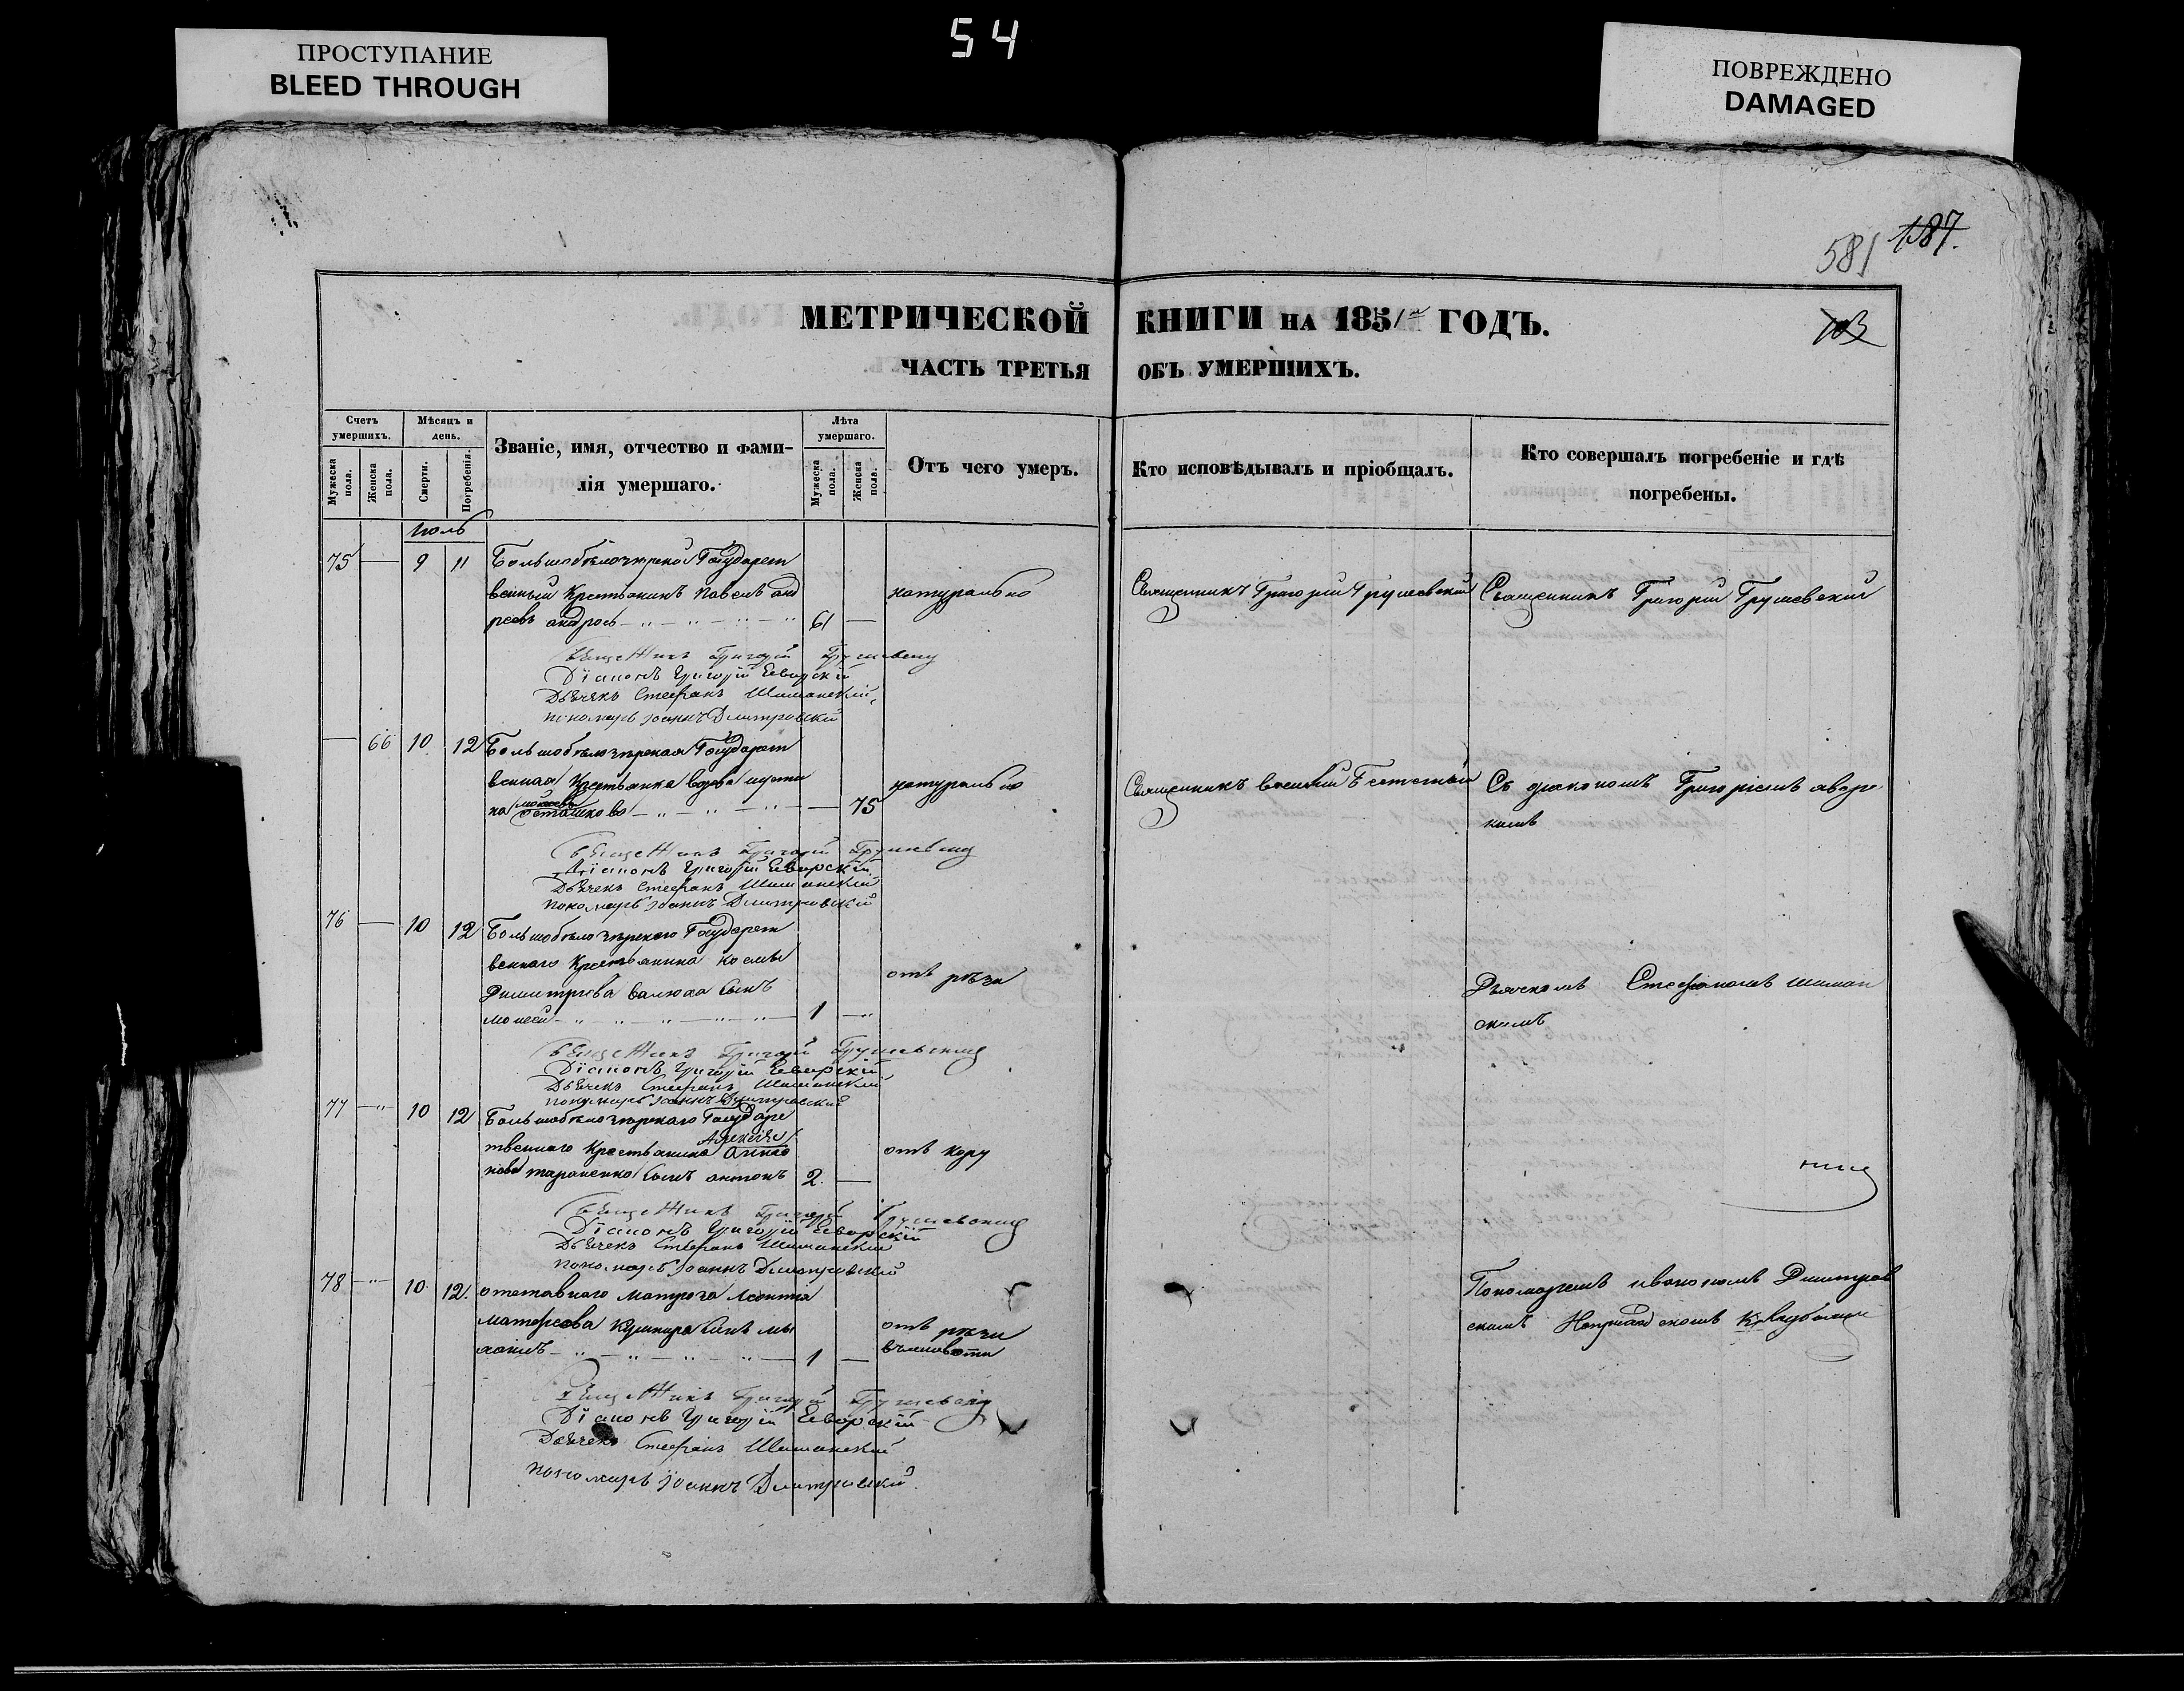 54
ПРОСТУПАНИЕ
BLEED THROUGH
ПОВРЕЖДЕНО
DAMAGED
581 187.
МЕТРИЧЕСКОЙ КНИГИ НА 1851 ГОДЪ.
103
ЧАСТЬ ТРЕТЬЯ ОБЪ УМЕРШИХЪ.
Счетъ умершихъ.
Мужеска пола.
Женска пола.
Мѣсяцъ и день.
Смерти.
Погребенія.
Званіе, имя, отчество и фами-
лія умершаго.
Лѣта умершаго.
Мужеска пола.
Женска пола.
Отъ чего умеръ.
Кто исповѣдывалъ и пріобщалъ.
Кто совершалъ погребеніе и гдѣ
погребены.
Июль
75 — 9 11 Большобѣлозерской Государст
венный Крестьянинъ Павелъ анд
натурально
Священникъ Григорій Грушевскій
Священникъ Григорій Грушевскій
реевъ 61 —
Священникъ Григорій Грушевскій
Діаконъ Григорій Яворскій
Дьячекъ Стефанъ Шиманскій
пономарь Іоаннъ Дмитровскій
— 66 10 12 Большобѣлозерская Государст
венная Крестьянка вдова
натурально
Священникъ василій
Съ діакономъ Григоріемъ явор
на — 75
скимъ
Священникъ Григорій Грушевскій
Діаконъ Григорій Яворскій
Дьячекъ Стефанъ Шиманскій
пономарь Іоаннъ Дмитровскій
76 — 10 12 Большобѣлозерскаго Государст
веннаго Крестьянина космы
отъ рези
Димитріева сынъ
Дьячкомъ Стефаномъ шиман
моисей 1 —
скимъ
Священникъ Григорій Грушевскій
Діаконъ Григорій Яворскій
Дьячекъ Стефанъ Шиманскій
пономарь Іоаннъ Дмитровскій
77 — 10 12 Большобѣлозерскаго Государс
твеннаго Крестьянина
отъ кору
тараненко сынъ антонъ 2. —
Священникъ Григорій Грушевскій
Діаконъ Григорій Яворскій
Дьячекъ Стефанъ Шиманскій
пономарь Іоаннъ Дмитровскій
78 — 10 12. отставнаго матроса Леонтія
Пономаремъ иваномъ Дмитров
матфеева Кушнира сынъ ми
отъ рези
скимъ
хаилъ 1 —
Священникъ Григорій Грушевскій
Діаконъ Григорій Яворскій
Дьячекъ Стефанъ Шиманскій
пономарь Іоаннъ Дмитровскій